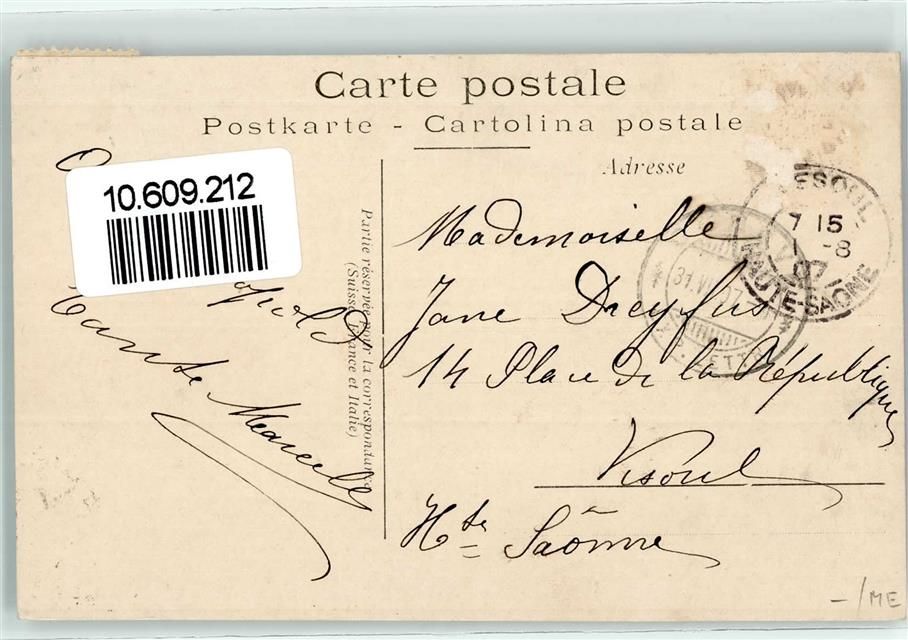 Carte postale
Postkarte - Cartolina postale
Adresse
10.609.212
Partie réservée pour la correspondance
(Suisse, France et Italie)
Tante Marcelle
Mademoiselle
Jane Dreyfus
14 Place de la République
Vesoul
Hte Saônne
VESOUL
7 15
1 -8
07
HAUTE-SAÔNE
31.VII.07
LETT
-/ME